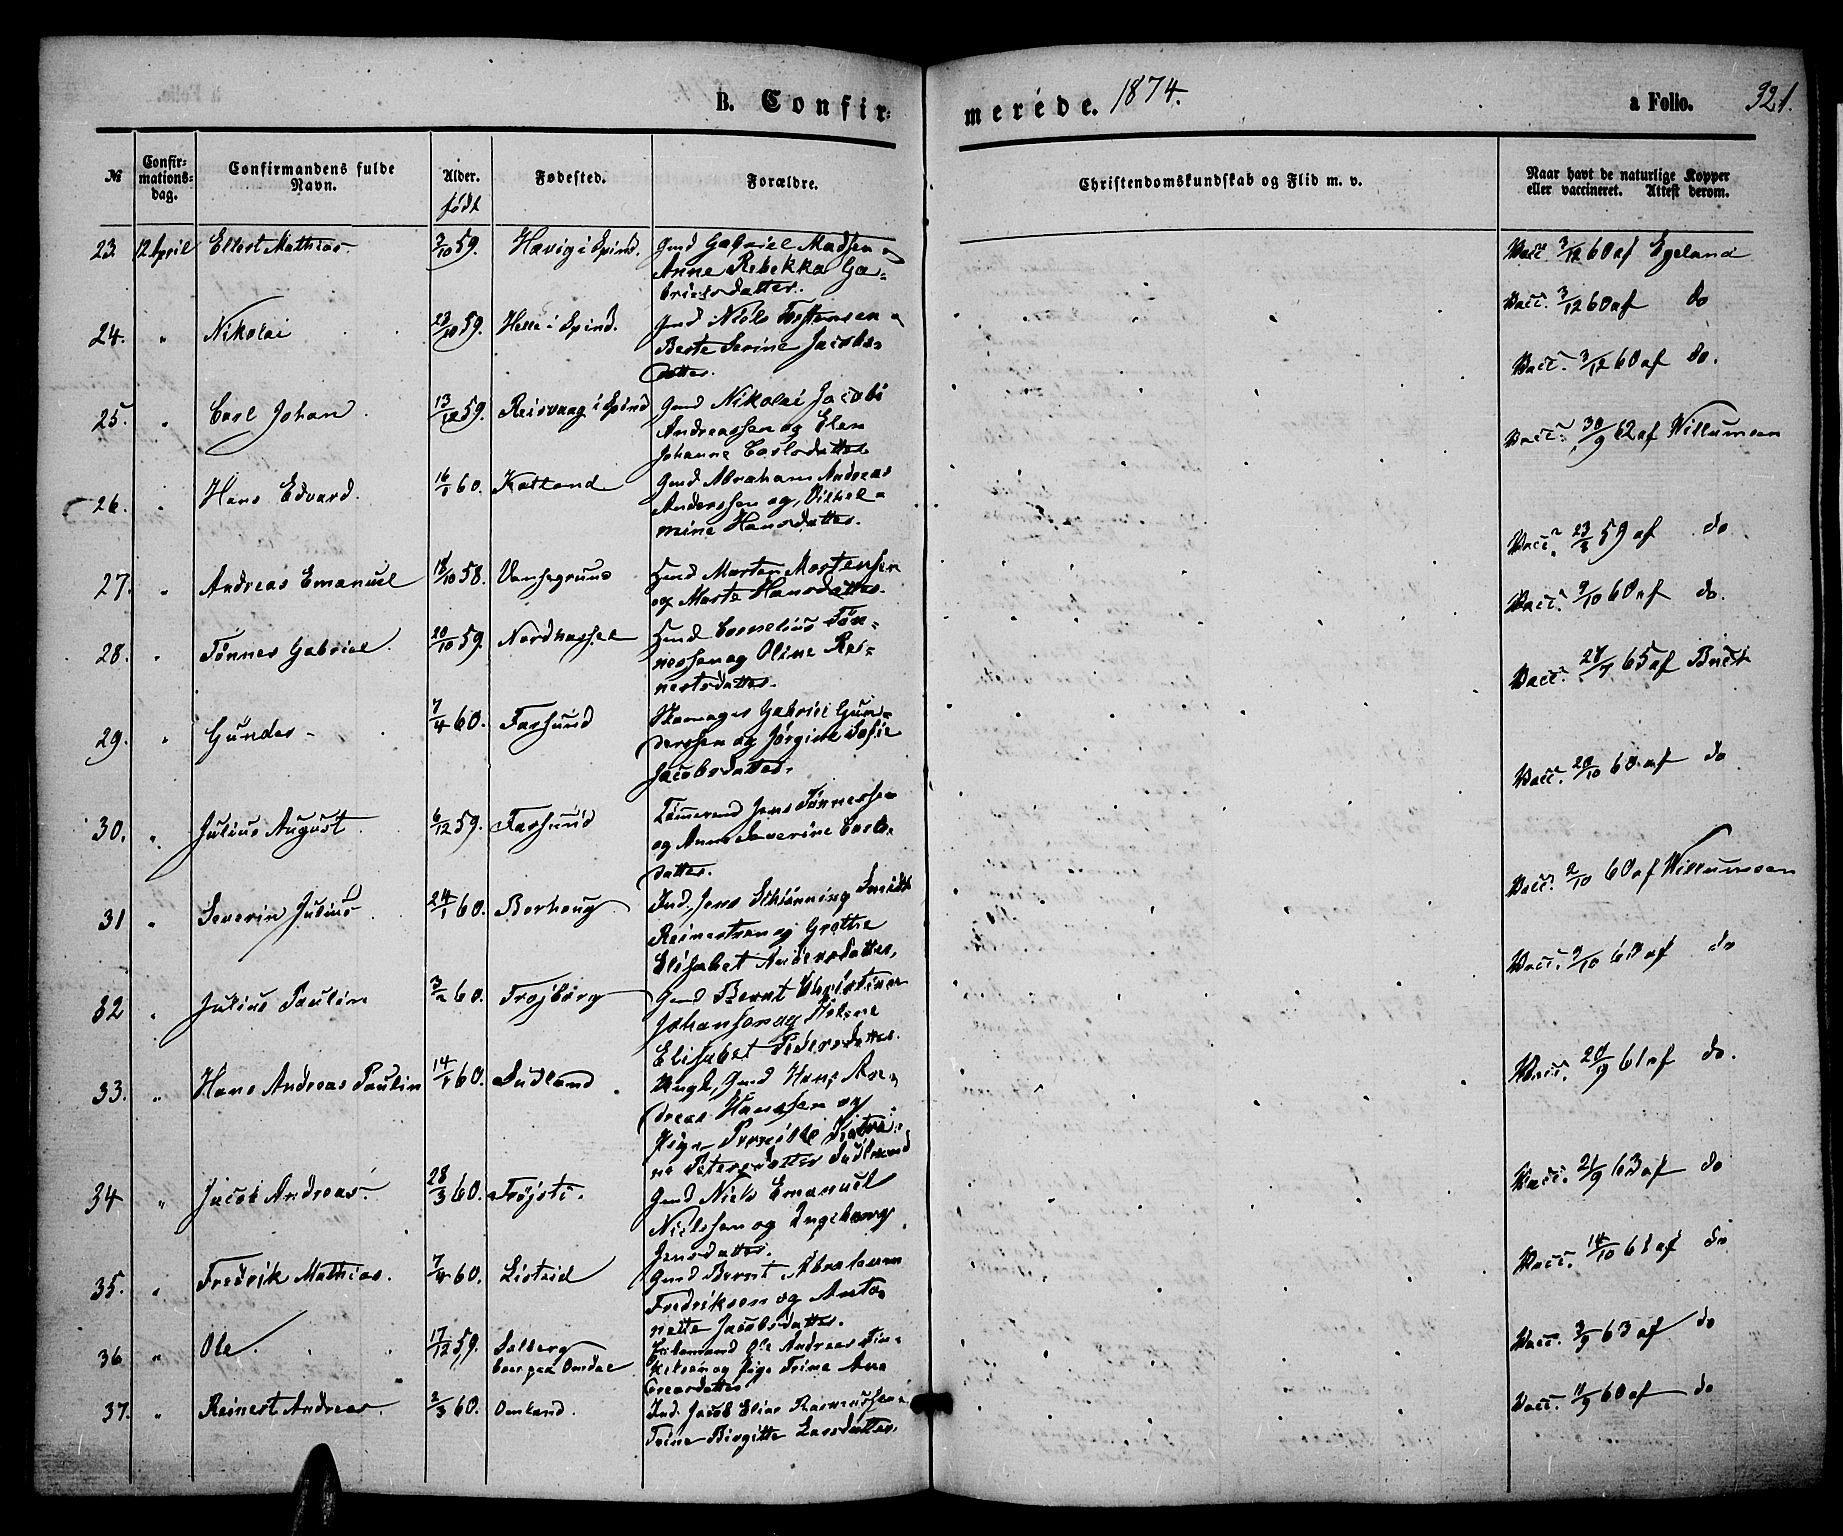 B. Confir- merede. 1874. a Folio. 321.
№ Confir-mations-dag. Confirmandens fulde Navn. Alder. født Fødested. Forældre. Christendomskundskab og Flid m. v. Naar havt de naturlige Kopper eller vaccineret. Attest derom.
23. 12 April Ellert Mathias. 3/10 59. Havig i Spind. Gmd Gabriel Madsen o
Anne Rebekka Ga-
brielsdatter.
Vacc. 3/12 60 af Egeland
24. " Nikolai 23/10 59. Helle i Spind. Gmd Niels Torstensen o
Berte Serine Jacobs-
datter.
Vacc. 3/12 60 af do
25. " Carl Johan. 13/12 59. Reisvaag i Spind Gmd Nikolai Jacobi
Andreassen og Elen
Johanne Carlsdatter
Vacc. 3/12 60 af do.
26. " Hans Edvard. 16/1 60. Katland Gmd Abraham Andreas
Anderssen og Vilhel-
mine Hansdatter.
Vacc. 30/9 62 af Willumsen
27. " Andreas Emanuel 18/10 58. Vansegrund Hmd Morten Mortensen
og Marte Hansdatter.
Vacc. 23/8 59 af do
28. " Tønnes Gabriel. 20/10 59. Nordhassel Hmd Cornelius Tøn-
nessen og Oline Rei-
nertsdatter.
Vacc. 9/10 60 af do.
29. " Gunder 7/4 60. Farsund Skomager Gabriel Gun-
derssen og Jørgine Sofie
Jacobsdatter.
Vacc. 28/7 65 af
30. " Julius August. 6/12 59. Farsund Tømmermd Jens Tønnessen
og Anne Severine Carls-
datter.
Vacc. 20/10 60 af do
31 " Severin Julius. 24/1 60. Borhoug. Ind. Jens Schiønning Smidt
Reinertsen og Grethe
Elisabet Andersdatter.
Vacc. 2/10 60 af Willumsen
32 " Julius Paulin 3/2 60. Frøjborg Gmd Bernt Christian
Johansen og Helene
Elisabet Pedersdatter.
Vacc. 9/10 60 af do
33. " Hans Andreas Paulin 14/1 60. Sudland Ungk., Gmd Hans An-
dreas Hanssen og
Pige Pernille Katri-
ne Petersdatter Sudland
Vacc. 20/9 61 af do.
34 " Jacob Andreas. 28/3 60. Frøjsti. Gmd Niels Emanuel
Nielssen og Ingeborg
Jensdatter.
Vacc. 21/9 63 af do
35. " Fredrik Mathias. 7/4 60. Listeid Gmd Bernt Abraham
Fredriksen og Anto-
nette Jacobsdatter.
Vacc. 14/10 61 af do
36 " Ole. 17/12 59. Solberg
boer paa Omdal Ole Andreas
og Pige Trine
Vacc. 3/9 63 af do
37. " Reinert Andreas. 2/3 60. Omland. Ind. Jacob Elias Rasmussen o
Trine Birgitte Larsdatter.
Vacc. 11/9 60 af do